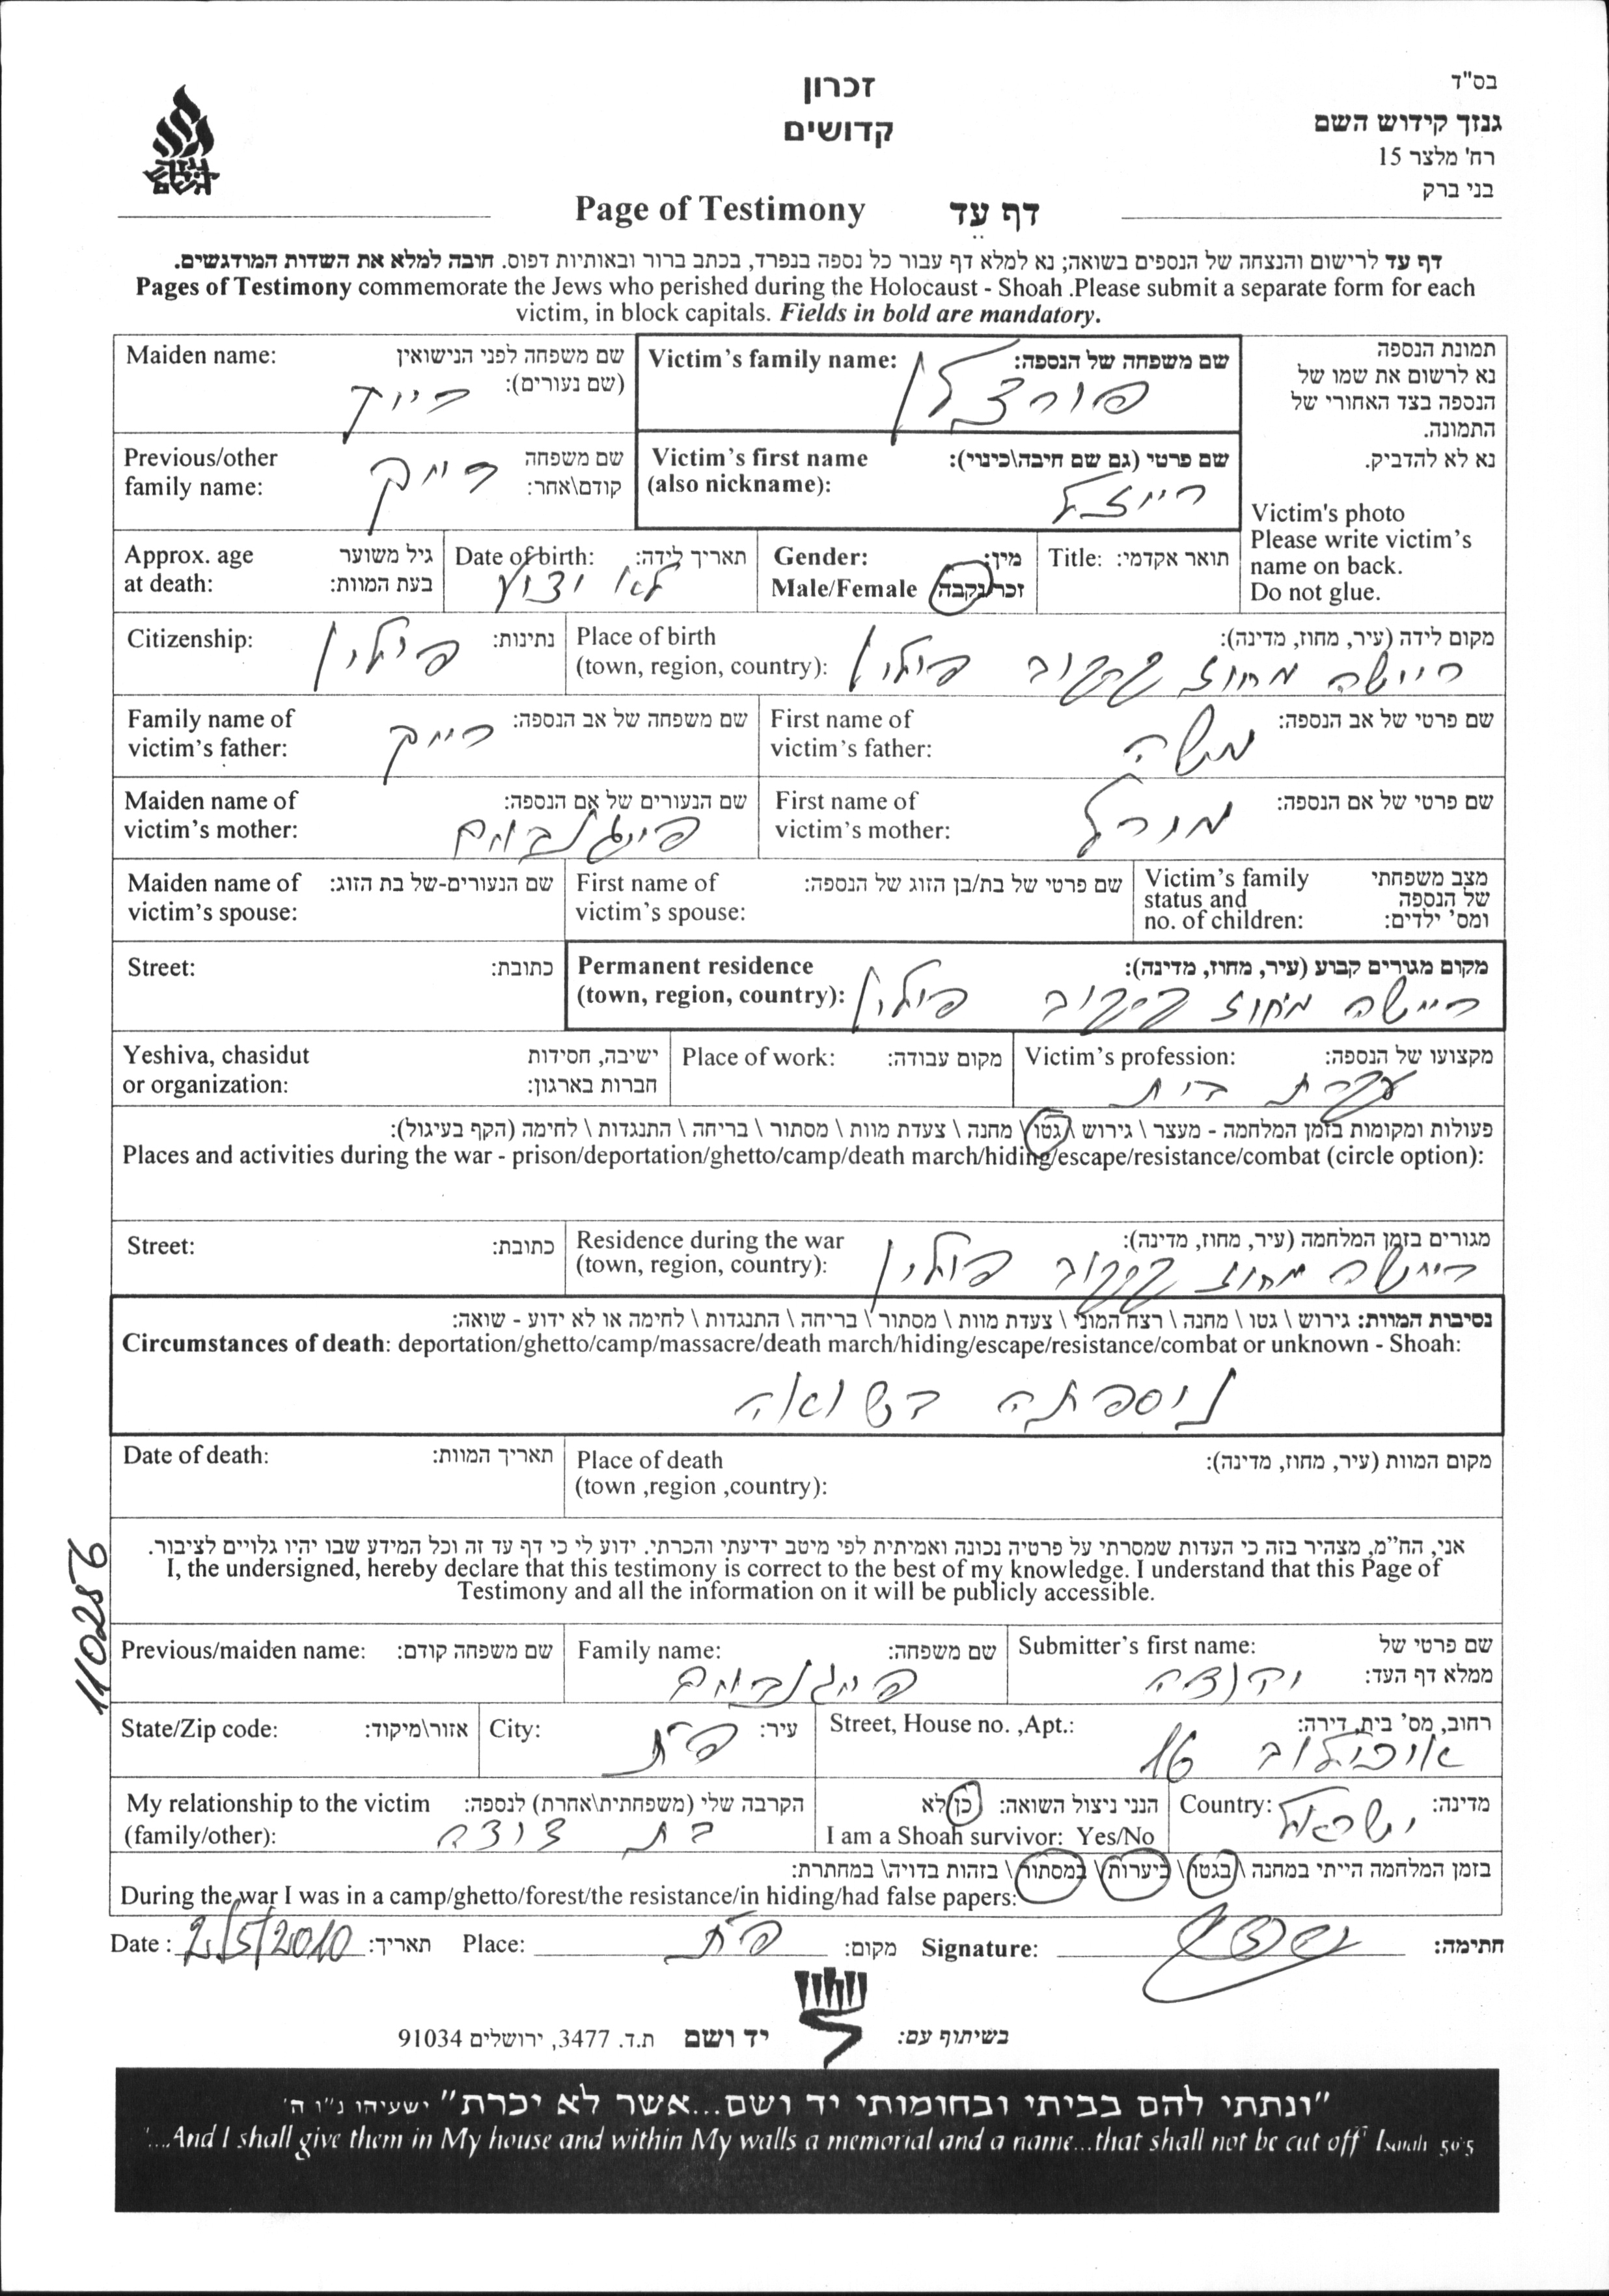 בס"ד
גנזך קידוש השם
רח' מלצר 15
בני ברק
זכרון
קדושים
גנזך קידוש השם
Page of Testimony דף עד
דף עד לרישום והנצחה של הנספים בשואה; נא למלא דף עבור כל נספה בנפרד, בכתב ברור ובאותיות דפוס. חובה למלא את השדות המודגשים.
Pages of Testimony commemorate the Jews who perished during the Holocaust - Shoah .Please submit a separate form for each
victim, in block capitals. Fields in bold are mandatory.
תמונת הנספה
נא לרשום את שמו של
הנספה בצד האחורי של
התמונה.
נא לא להדביק.
Victim's photo
Please write victim's
name on back.
Do not glue.
Victim's family name: שם משפחה של הנספה:
פורצלן
Maiden name: שם משפחה לפני הנישואין
(שם נעורים):
רייך
Victim's first name שם פרטי (גם שם חיבה\כינוי):
(also nickname):
רייזל
Previous/other שם משפחה
family name: קודם\אחר:
רייך
Title: תואר אקדמי:
Gender: מין:
Male/Female זכר/נקבה
Date of birth: תאריך לידה:
לא ידוע
Approx. age גיל משוער
at death: בעת המוות:
Place of birth מקום לידה (עיר, מחוז, מדינה):
(town, region, country):
ריישה מחוז קרקוב פולין
Citizenship: נתינות:
פולין
First name of שם פרטי של אב הנספה:
victim's father:
משה
Family name of שם משפחה של אב הנספה:
victim's father:
רייך
First name of שם פרטי של אם הנספה:
victim's mother:
Maiden name of שם הנעורים של אם הנספה:
victim's mother:
פייגנבוים
Victim's family מצב משפחתי
status and של הנספה
no. of children: ומס' ילדים:
First name of שם פרטי של בת/בן הזוג של הנספה:
victim's spouse:
Maiden name of שם הנעורים-של בת הזוג:
victim's spouse:
Permanent residence מקום מגורים קבוע (עיר, מחוז, מדינה):
(town, region, country):
ריישה מחוז קרקוב פולין
Street: כתובת:
Victim's profession: מקצועו של הנספה:
עקרת בית
Place of work: מקום עבודה:
Yeshiva, chasidut ישיבה, חסידות
or organization: חברות בארגון:
פעולות ומקומות בזמן המלחמה - מעצר \ גירוש \ גטו \ מחנה \ צעדת מוות \ מסתור \ בריחה \ התנגדות \ לחימה (הקף בעיגול):
Places and activities during the war - prison/deportation/ghetto/camp/death march/hiding/escape/resistance/combat (circle option):
Residence during the war מגורים בזמן המלחמה (עיר, מחוז, מדינה):
(town, region, country):
ריישה מחוז קרקוב פולין
Street: כתובת:
נסיבות המוות: גירוש \ גטו \ מחנה \ רצח המוני \ צעדת מוות \ מסתור \ בריחה \ התנגדות \ לחימה או לא ידוע - שואה:
Circumstances of death: deportation/ghetto/camp/massacre/death march/hiding/escape/resistance/combat or unknown - Shoah:
ניספתה בשואה
Place of death מקום המוות (עיר, מחוז, מדינה):
(town ,region ,country):
Date of death: תאריך המוות:
אני, הח"מ, מצהיר בזה כי העדות שמסרתי על פרטיה נכונה ואמיתית לפי מיטב ידיעתי והכרתי. ידוע לי כי דף עד זה וכל המידע שבו יהיו גלויים לציבור.
I, the undersigned, hereby declare that this testimony is correct to the best of my knowledge. I understand that this Page of
Testimony and all the information on it will be publicly accessible.
110256
Submitter's first name: שם פרטי של
ממלא דף העד:
Family name: שם משפחה:
פייגנבוים
Previous/maiden name: שם משפחה קודם:
Street, House no. ,Apt.: רחוב, מס' בית, דירה:
16
City: עיר:
פ"ת
State/Zip code: אזור\מיקוד:
Country: מדינה:
ישראל
הנני ניצול השואה: כן לא
I am a Shoah survivor: Yes/No
My relationship to the victim הקרבה שלי (משפחתית\אחרת) לנספה:
(family/other):
בת דודה
בזמן המלחמה הייתי במחנה \ בגטו \ ביערות \ במסתור \ בזהות בדויה\ במחתרת:
During the war I was in a camp/ghetto/forest/the resistance/in hiding/had false papers:
Date : 2/5/2010 תאריך: Place: פ"ת מקום: Signature: חתימה:
בשיתוף עם: יד ושם ת.ד. 3477, ירושלים 91034
"ונתתי להם בביתי ובחומותי יד ושם...אשר לא יכרת" ישעיהו נ"ו ה'
"...And I shall give them in My house and within My walls a memorial and a name...that shall not be cut off" Isaiah 56:5